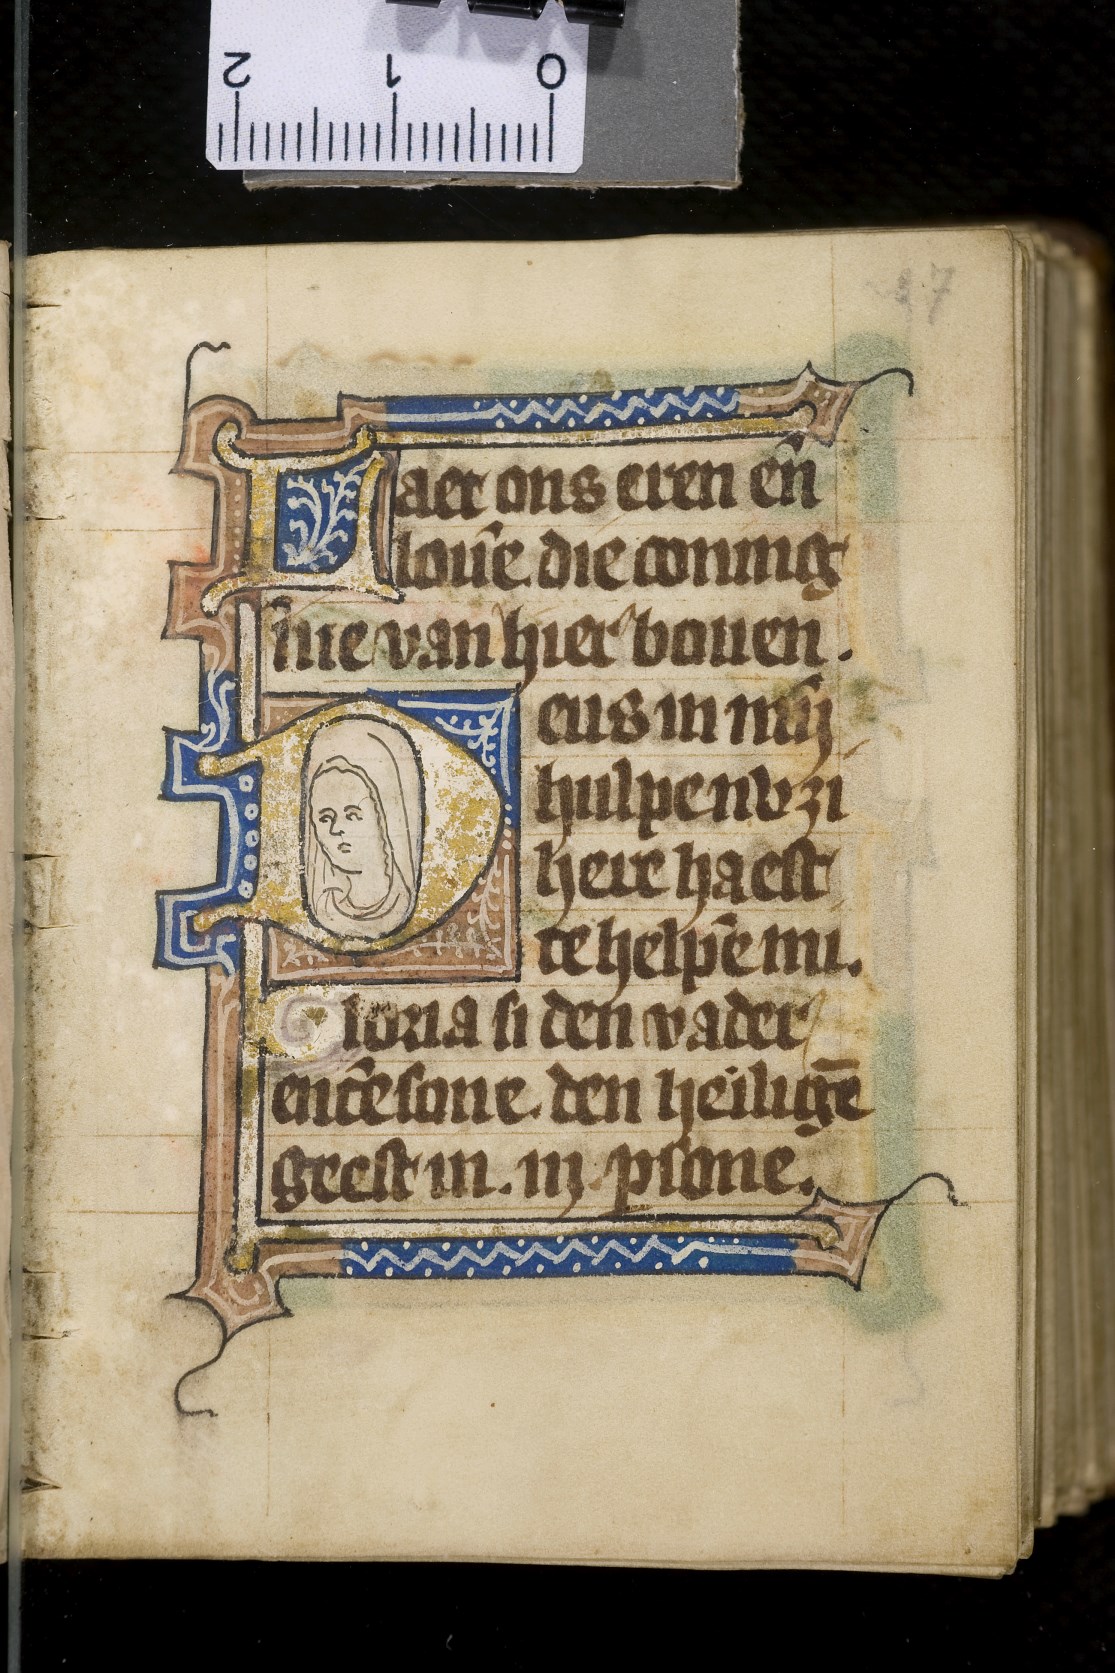 2 1 0
47
Laet ons eren en̄
loūe die coning
nne van hier bouen .
Deus in mijn
hulpen v zi
here haest
te helpē mi.
Gloria si den vader
en̄ dē sone. den heiligē
geest in . iij . psone.